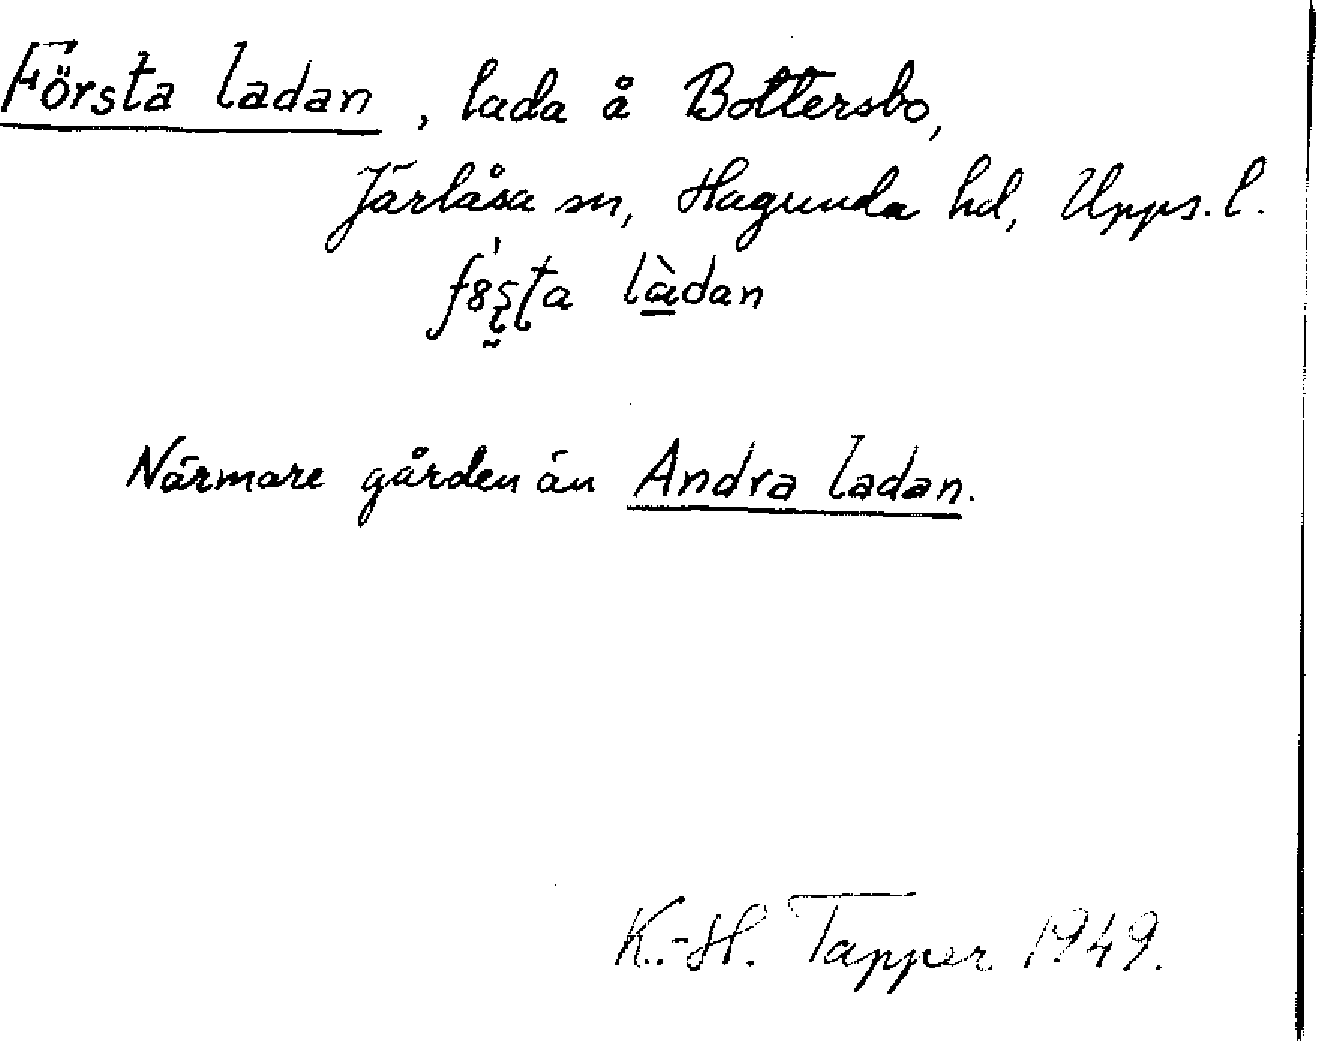 Första ladan, lada å Bottersbo,
Järlåsa sn, Hagunda hd, Upps. l.
ladan
Närmare gården än Andra ladan.
K.-H. Tapper 1949.